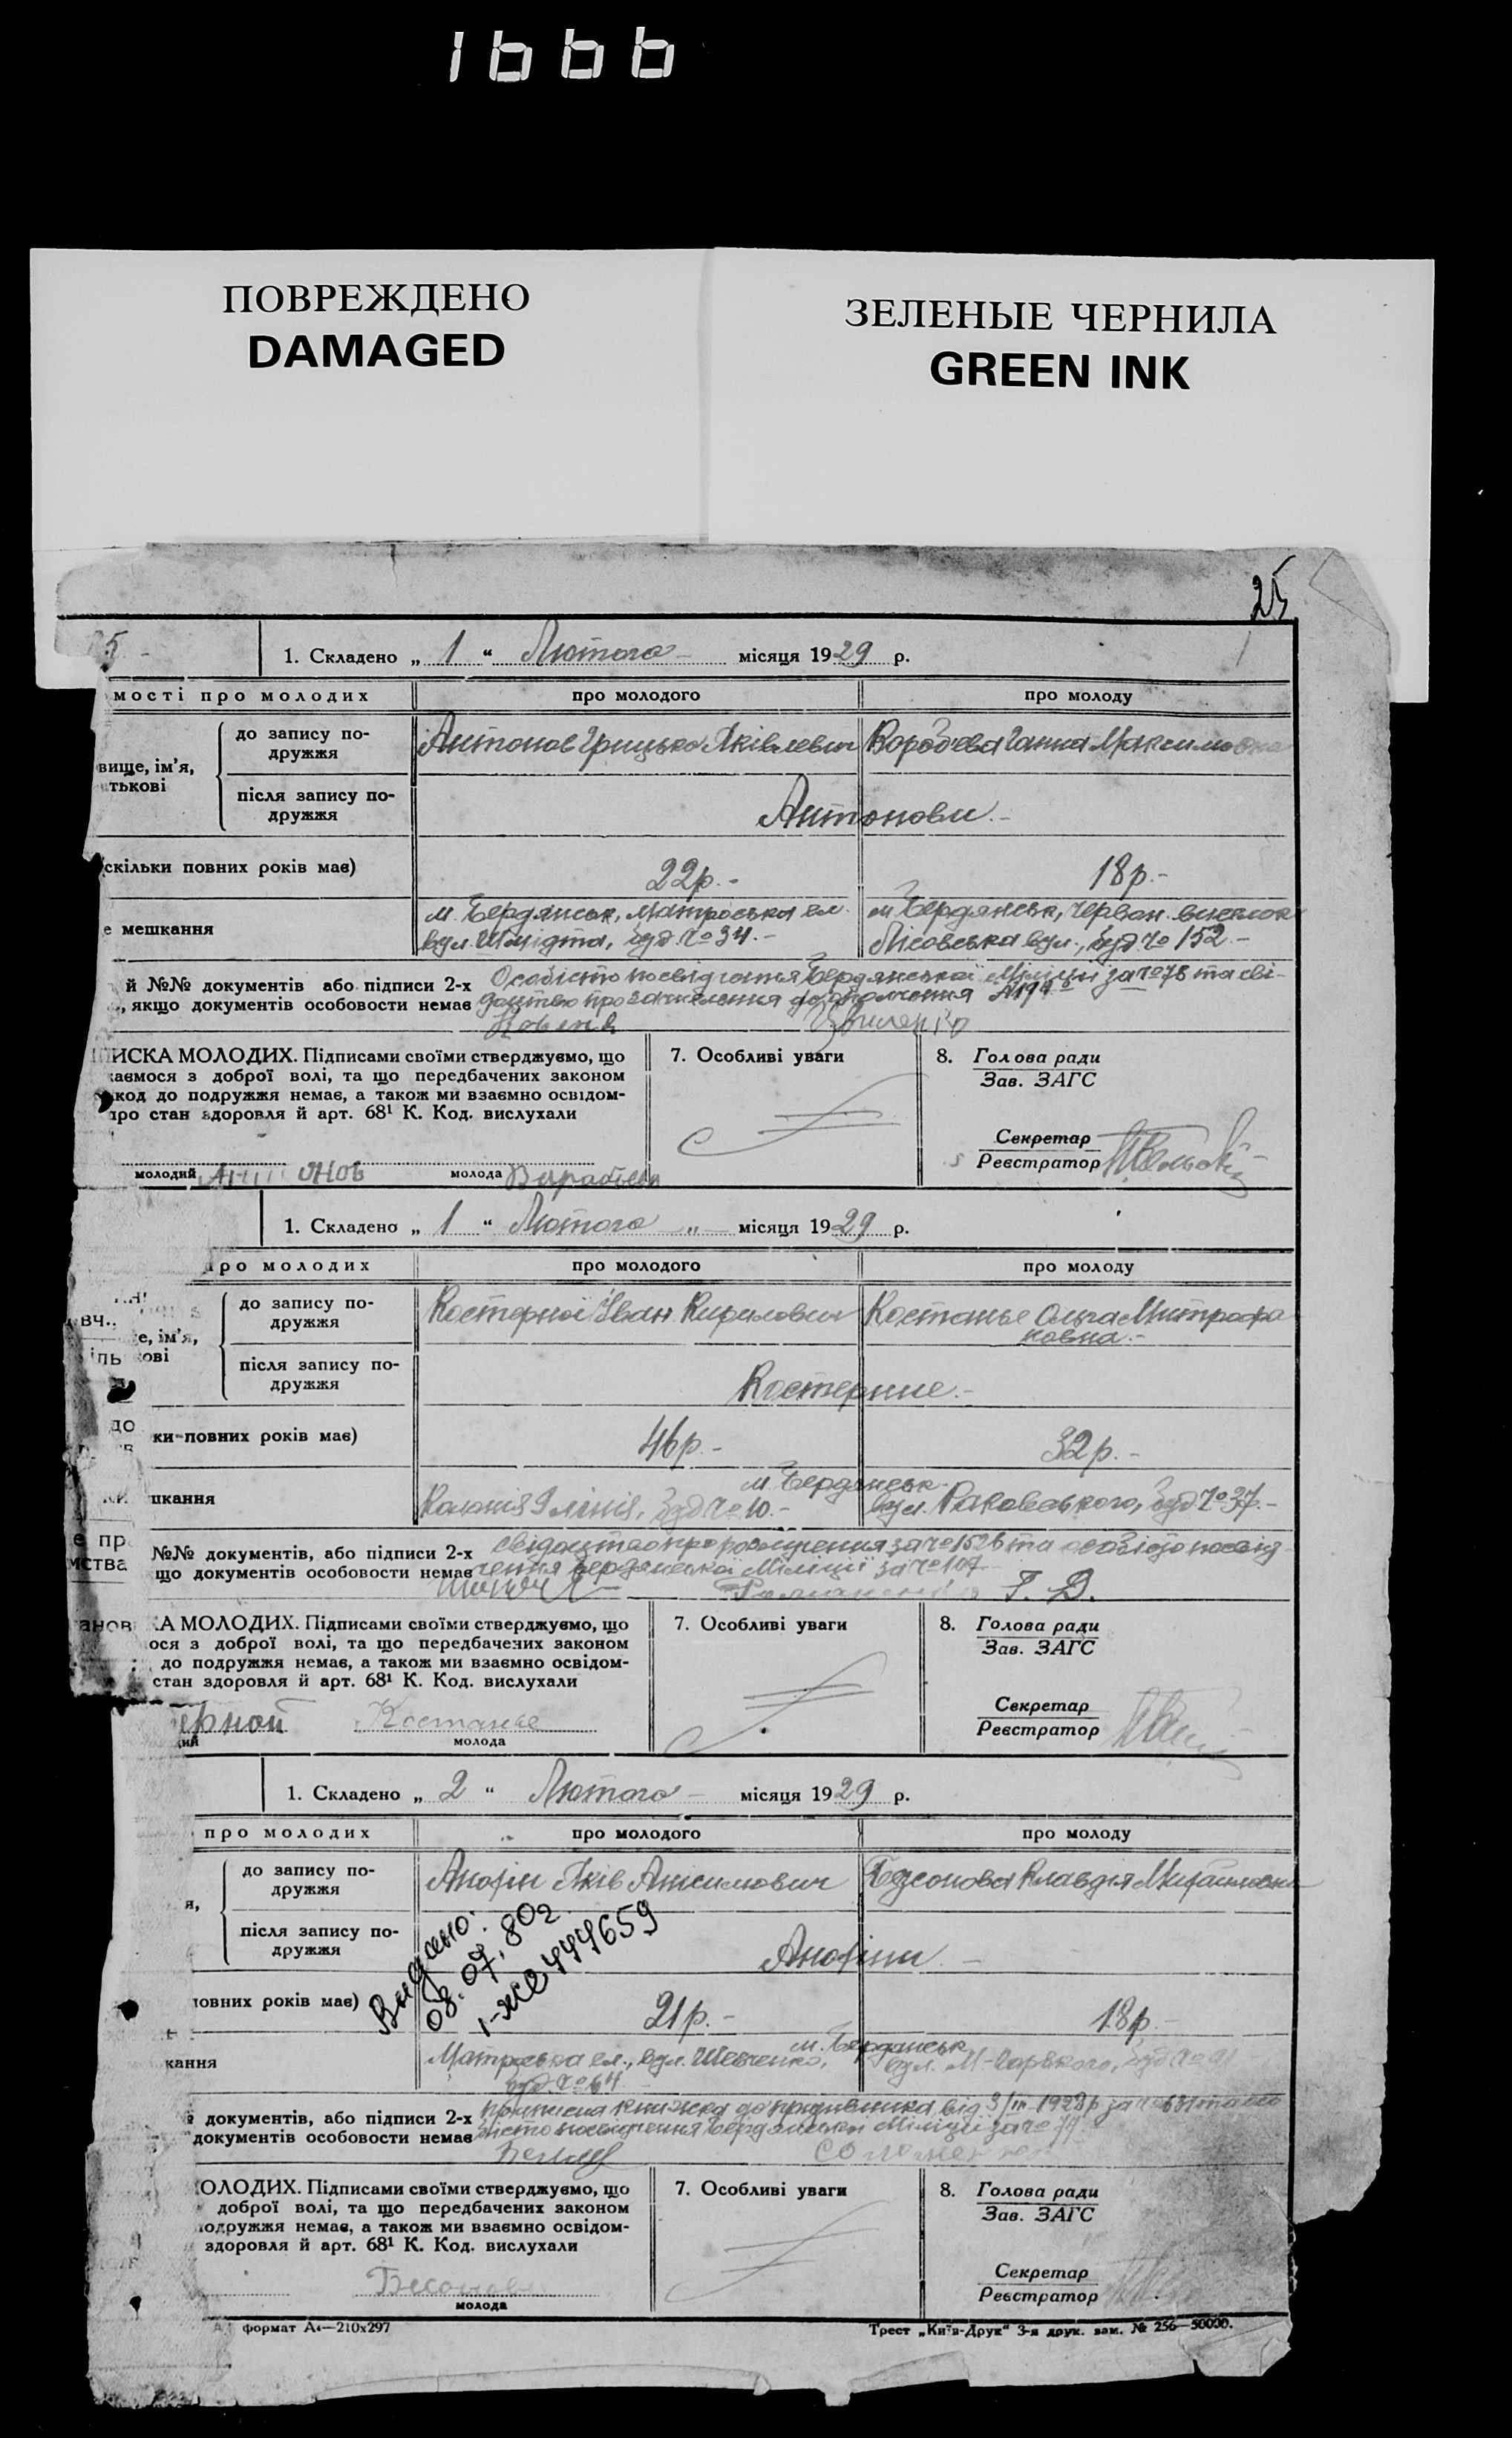 1666
ПОВРЕЖДЕНО
DAMAGED
ЗЕЛЕНЫЕ ЧЕРНИЛА
GREEN INK
25
1. Складено „ 1 “ Лютого - місяця 1929 р.
мості про молодих
про молодого
про молоду
вище, ім’я,
тькові
до запису по-
дружжя
Антонов Грицько Яківлевич
Воробʼева Ганна Максимовна
після запису по-
дружжя
Антонови.-
скільки повних років має)
22р.-
18р.-
е мешкання
м. Бердянськ, Матроська сл.
вул. Шмідта, буд. № 34.-
м. Бердянськ, Червон. виселок
Лісовська вул., буд. № 152.-
й №№ документів або підписи 2-х
, якщо документів особовости немає
Особисто посвідчення Бердянської Міліції за № 78 та сві-
доцтво про зачислення до ополчення
ИСКА МОЛОДИХ. Підписами своїми стверджуємо, що
аємося з доброї волі, та що передбачених законом
код до подружжя немає, а також ми взаємно освідом-
про стан здоровля й арт. 68¹ К. Код. вислухали
7. Особливі уваги
8. Голова ради
Зав. ЗАГС
Секретар
Реєстратор
молодий
молода
1. Складено „ 1 “ Лютого „ - місяця 1929 р.
про молодих
про молодого
про молоду
е, ім’я,
ові
до запису по-
дружжя
Костерной Іван Кирилович
Костанье Ольга Митрофа
новна.-
після запису по-
дружжя
Костерние.-
ки повних років має)
46р.-
32р.-
шкання
м. Бердянськ.
Колонія Лінія, буд № 10.-
вул. Раковського, буд. № 37.-
№№ документів, або підписи 2-х
що документів особовости немає
свідоцтво про розлучення за № 1526 та особісто посвід-
чення Бердянської Міліції за № 107
Г. Д.
КА МОЛОДИХ. Підписами своїми стверджуємо, що
ося з доброї волі, та що передбачених законом
до подружжя немає, а також ми взаємно освідом-
стан здоровля й арт. 68¹ К. Код. вислухали
7. Особливі уваги
8. Голова ради
Зав. ЗАГС
Секретар
Реєстратор
ерной
Костанье
молода
1. Складено „ 2 “ Лютого - місяця 1929 р.
про молодих
про молодого
про молоду
я,
до запису по-
дружжя
Анофін Яків Анисимович
Бєсонова Клавдія Михайловна
після запису по-
дружжя
Анофіни.-
Видано:
08.07.80г
повних років має)
21р.-
18р.-
кання
м. Бердянськ
Матроська сл., вул. Шевченко,
буд. № 64
документів, або підписи 2-х
документів особовости немає
приписна книжка до призивника від 3/III-1928р
посвідчення Бердянської Міліції за №
ОЛОДИХ. Підписами своїми стверджуємо, що
доброї волі, та що передбачених законом
подружжя немає, а також ми взаємно освідом-
здоровля й арт. 68¹ К. Код. вислухали
7. Особливі уваги
8. Голова ради
Зав. ЗАГС
Секретар
Реєстратор
молода
формат А₄—210x297
Трест „Київ-Друк“ 3-я друк. зам. № 256—50000.